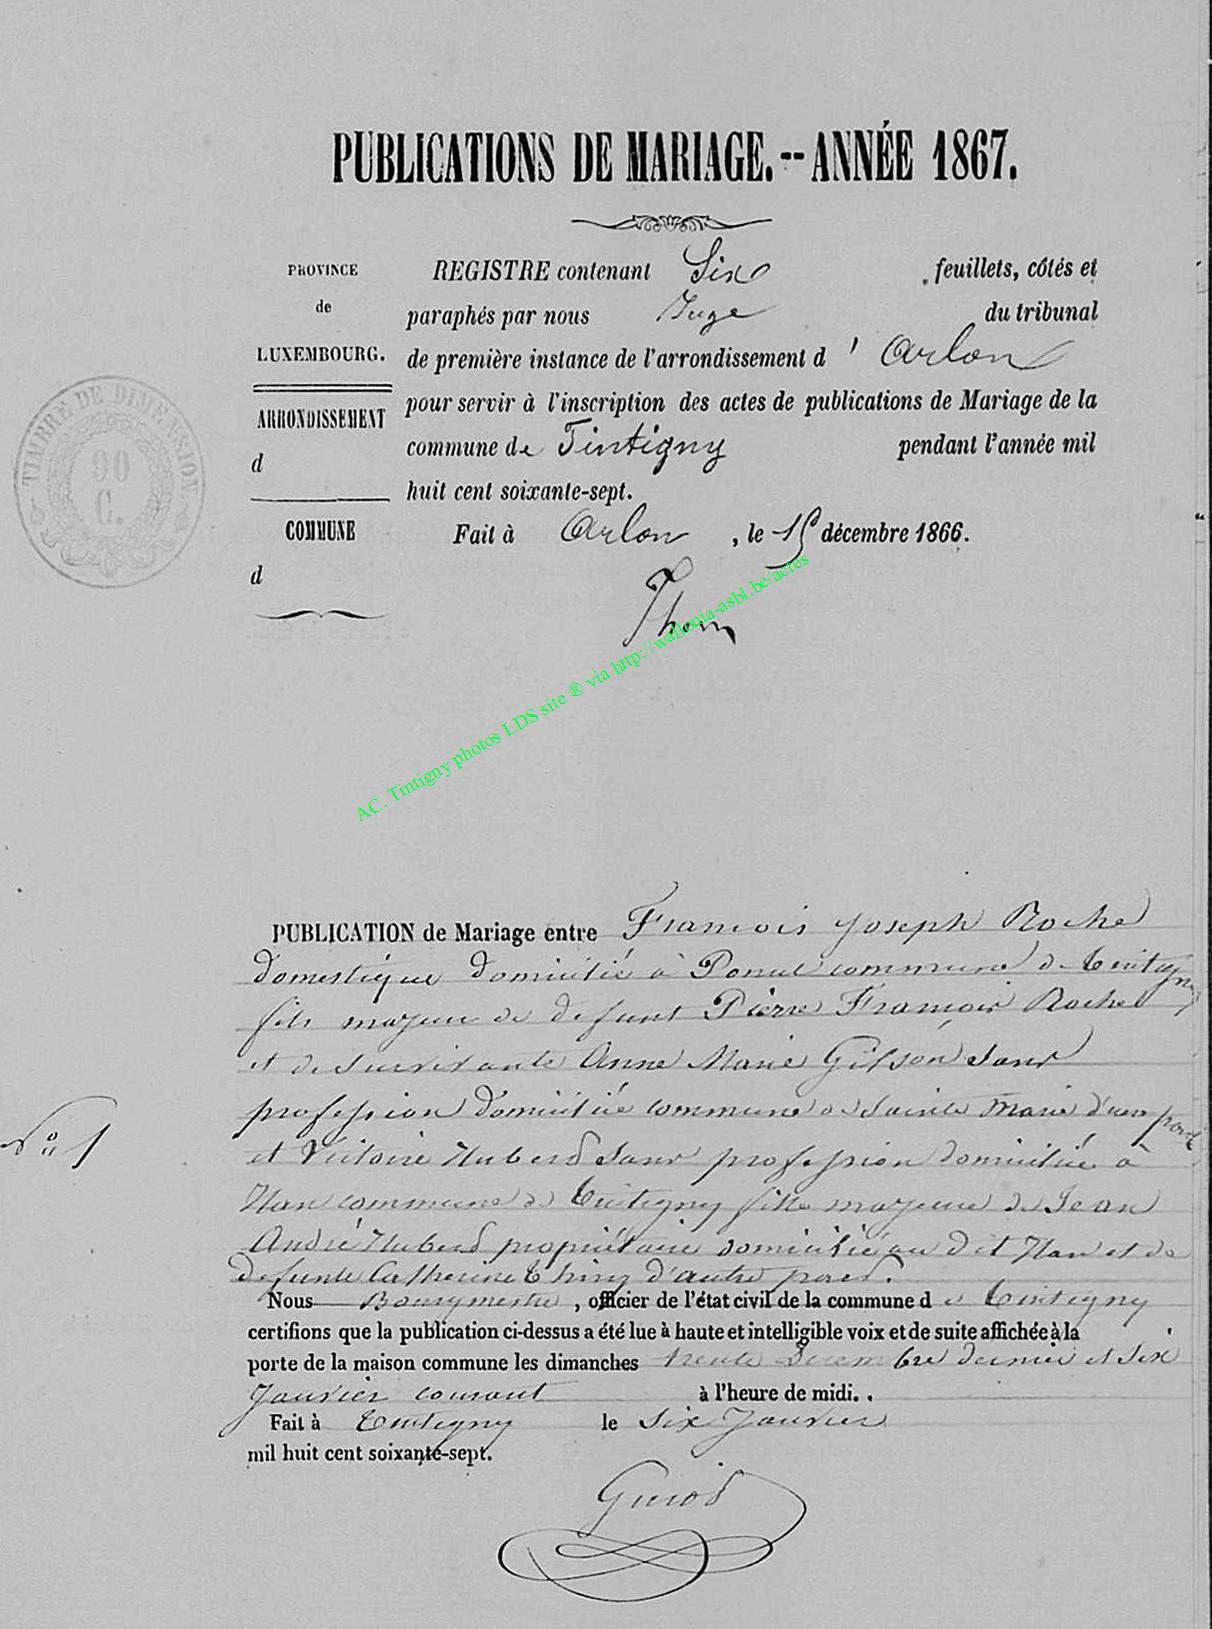 PUBLICATIONS DE MARIAGE.--ANNÉE 1867.
PROVINCE
de
LUXEMBOURG.
ARRONDISSEMENT
d
COMMUNE
d
REGISTRE contenant Six feuillets, côtés et
paraphés par nous Juge du tribunal
de première instance de l'arrondissement d' Arlon
pour servir à l'inscription des actes de publications de Mariage de la
commune de Tintigny pendant l'année mil
huit cent soixante-sept.
Fait à Arlon, le 15 décembre 1866.
TIMBRE DE DIMENSION
90
C.
AC. Tintigny photos LDS site ® via http://wallonia-asbl.be/actes
N° 1
PUBLICATION de Mariage entre François Joseph Roche
domestique domicilié à commune de Tintigny
fils majeur de defunt Pierre François Roche
et de survivante Anne Marie Gilson sans
profession domiciliée commune de Sainte Marie d'une part
et Victoire Hubert sans profession domiciliée à
Han commune de Tintigny fille majeure de Jean
André Hubert propriétaire domicilié au dit Han et de
defunte Catherine Thiry d'autre part.
Nous Bourgmestre, officier de l'état civil de la commune de Tintigny
certifions que la publication ci-dessus a été lue à haute et intelligible voix et de suite affichée à la
porte de la maison commune les dimanches trente Décembre dernier et Six
Janvier courant à l'heure de midi..
Fait à Tintigny le Six Janvier
mil huit cent soixante-sept.